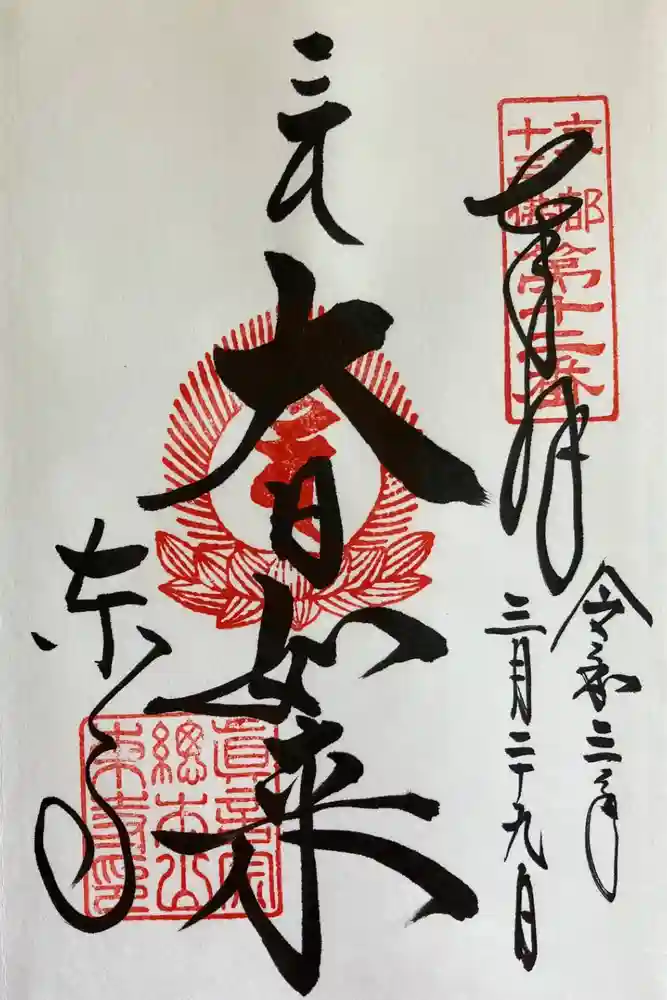 京都
十三佛
第十二番
奉拝
令和三年
三月二十九日
大日如来
東寺
眞言宗
總本山
東寺印